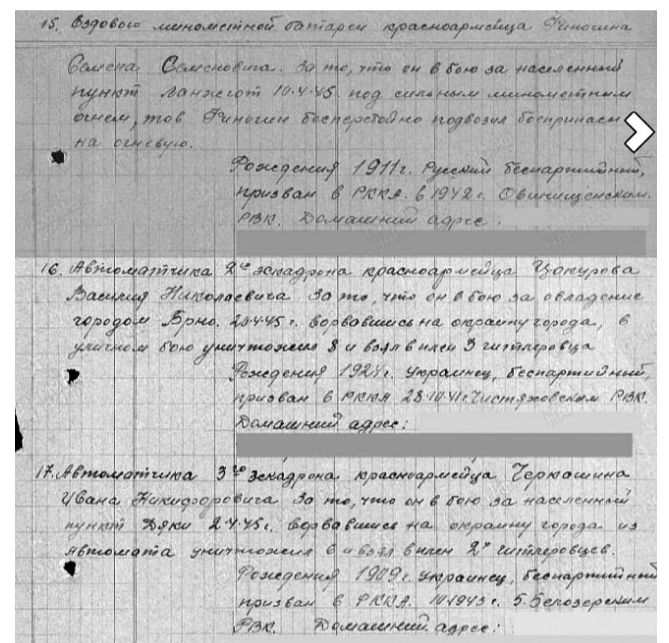 15. Ездового минометной батареи красноармейца Финогина
Семена Семеновича. За то, что он в бою за населенный
пункт Ланжгот 10.4.45. под сильным минометным
огнем, тов Финогин бесперебойно подвозил боеприпасы
на огневую.
Рождения 1911г. Русский беспартийный,
призван в РККА. в 1942г.
РВК. Домашний адрес:
16. Автоматчика 2го эскадрона красноармейца Цокурова
Василия Николаевича За то, что он в бою за овладение
городом Брно. ворвавшись на окраину города, в
уличном бою уничтожил 8 и взял в плен 3 гитлеровца
Рождения 1924г. украинец, беспартийный,
призван в РККА 28.10.41г. Чистяковским РВК.
Домашний адрес:
17. Автоматчика 3го эскадрона красноармейца Черкашина
Ивана Никифоровича За то, что он в бою за населенный
пункт Дяки 2.4.45г. ворвавшись на окраину города из
автомата уничтожил 6 и взял в плен 2х гитлеровцев.
Рождения 1909г. украинец, беспартийный
призван в РККА. Белозерским
РВК. Домашний адрес: